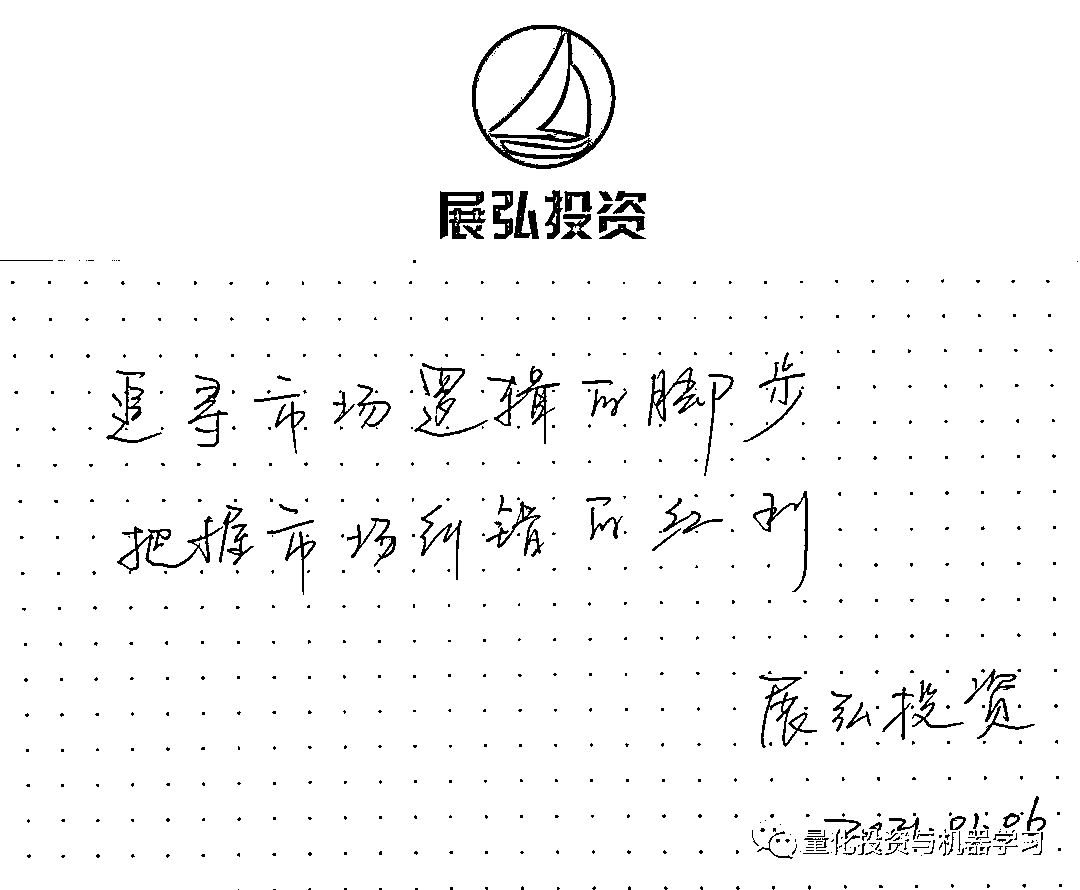 展弘投资
追寻市场逻辑的脚步
把握市场纠错的红利
展弘投资
2021.01.06
量化投资与机器学习